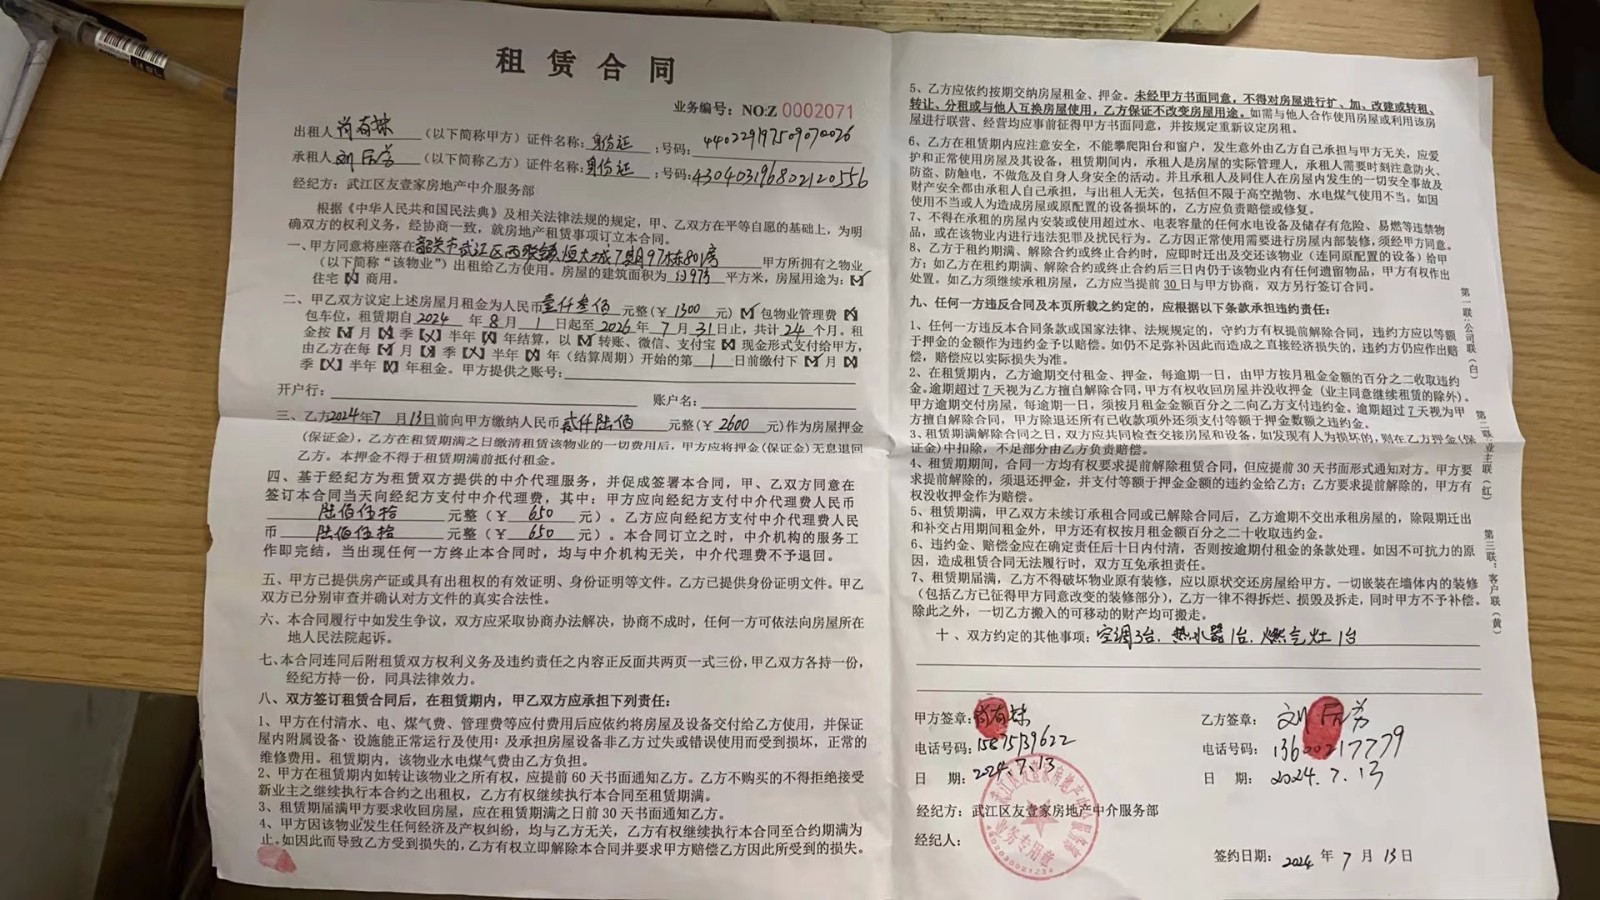 租赁合同
业务编号：NO:Z 0002071
出租人 （以下简称甲方）证件名称：身份证；号码：440229197509070026
承租人刘 （以下简称乙方）证件名称：身份证；号码：430403196802120556
经纪方：武江区友壹家房地产中介服务部
根据《中华人民共和国民法典》及相关法律法规的规定，甲、乙双方在平等自愿的基础上，为明
确双方的权利义务，经协商一致，就房地产租赁事项订立本合同。
一、甲方同意将座落在韶关市武江区西联镇恒大城7期97栋801房 甲方所拥有之物业
（以下简称“该物业”）出租给乙方使用。房屋的建筑面积为 平方米，房屋用途为：
住宅 商用。
二、甲乙双方议定上述房屋月租金为人民币壹仟叁佰元整（¥1300元）包物业管理费
包车位，租赁期自2024年8月1日起至2026年7月31日止，共计24个月。租
金按 月 季 半年 年结算，以 转账、微信、支付宝 现金形式支付给甲方，
由乙方在每 月 季 半年 年（结算周期）开始的第1日前缴付下 月
季 半年 年租金。甲方提供之账号：
开户行： 账户名：
三、乙方2024年7月13日前向甲方缴纳人民币贰仟陆佰元整（¥2600元）作为房屋押金
（保证金），乙方在租赁期满之日缴清租赁该物业的一切费用后，甲方应将押金（保证金）无息退回
乙方。本押金不得于租赁期满前抵付租金。
四、基于经纪方为租赁双方提供的中介代理服务，并促成签署本合同，甲、乙双方同意在
签订本合同当天向经纪方支付中介代理费，其中：甲方应向经纪方支付中介代理费人民币
陆佰伍拾元整（¥650元）。乙方应向经纪方支付中介代理费人民
币陆佰伍拾元整（¥650元）。本合同订立之时，中介机构的服务工
作即完结，当出现任何一方终止本合同时，均与中介机构无关，中介代理费不予退回。
五、甲方已提供房产证或具有出租权的有效证明、身份证明等文件。乙方已提供身份证明文件。甲乙
双方已分别审查并确认对方文件的真实合法性。
六、本合同履行中如发生争议，双方应采取协商办法解决，协商不成时，任何一方可依法向房屋所在
地人民法院起诉。
七、本合同连同后附租赁双方权利义务及违约责任之内容正反面共两页一式三份，甲乙双方各持一份，
经纪方持一份，同具法律效力。
八、双方签订租赁合同后，在租赁期内，甲乙双方应承担下列责任：
1、甲方在付清水、电、煤气费、管理费等应付费用后应依约将房屋及设备交付给乙方使用，并保证
屋内附属设备、设施能正常运行及使用；及承担房屋设备非乙方过失或错误使用而受到损坏，正常的
维修费用。租赁期内，该物业水电煤气费由乙方负担。
2、甲方在租赁期内如转让该物业之所有权，应提前60天书面通知乙方。乙方不购买的不得拒绝接受
新业主之继续执行本合约之出租权，乙方有权继续执行本合同至租赁期满。
3、租赁期届满甲方要求收回房屋，应在租赁期满之日前30天书面通知乙方。
4、甲方因该物业发生任何经济及产权纠纷，均与乙方无关，乙方有权继续执行本合同至合约期满为
止。如因此而导致乙方受到损失的，乙方有权立即解除本合同并要求甲方赔偿乙方因此所受到的损失。
5、乙方应依约按期交纳房屋租金、押金。未经甲方书面同意，不得对房屋进行扩、加、改建或转租、
转让、分租或与他人互换房屋使用，乙方保证不改变房屋用途。如需与他人合作使用房屋或利用该房
屋进行联营、经营均应事前征得甲方书面同意，并按规定重新议定房租。
6、乙方在租赁期内应注意安全，不能攀爬阳台和窗户，发生意外由乙方自己承担与甲方无关，应爱
护和正常使用房屋及其设备，租赁期间内，承租人是房屋的实际管理人，承租人需要时刻注意防火、
防盗、防触电，不做危及自身人身安全的活动。并且承租人及同住人在房屋内发生的一切安全事故及
财产安全都由承租人自己承担，与出租人无关，包括但不限于高空抛物、水电煤气使用不当。如因
使用不当或人为造成房屋或原配置的设备损坏的，乙方应负责赔偿或修复。
7、不得在承租的房屋内安装或使用超过水、电表容量的任何水电设备及储存有危险、易燃等违禁物
品，或在该物业内进行违法犯罪及扰民行为。乙方因正常使用需要进行房屋内部装修，须经甲方同意。
8、乙方于租约期满、解除合约或终止合约时，应即时迁出及交还该物业（连同原配置的设备）给甲
方；如乙方在租约期满、解除合约或终止合约后三日内仍于该物业内有任何遗留物品，甲方有权作出
处置。如乙方须继续承租房屋，乙方应当提前30日与甲方协商，双方另行签订合同。
九、任何一方违反合同及本页所载之约定的，应根据以下条款承担违约责任：
1、任何一方违反本合同条款或国家法律、法规规定的，守约方有权提前解除合同，违约方应以等额
于押金的金额作为违约金予以赔偿。如仍不足弥补因此而造成之直接经济损失的，违约方仍应作出赔
偿，赔偿应以实际损失为准。
2、在租赁期内，乙方逾期交付租金、押金，每逾期一日，由甲方按月租金金额的百分之二收取违约
金。逾期超过7天视为乙方擅自解除合同，甲方有权收回房屋并没收押金（业主同意继续租赁的除外）。
甲方逾期交付房屋，每逾期一日，须按月租金金额百分之二向乙方支付违约金。逾期超过7天视为甲
方擅自解除合同，甲方除退还所有已收款项外还须支付等额于押金数额之违约金。
3、租赁期满解除合同之日，双方应共同检查交接房屋和设备，如发现有人为损坏的，则在乙方押金（保
证金）中扣除，不足部分由乙方负责赔偿。
4、租赁期期间，合同一方均有权要求提前解除租赁合同，但应提前30天书面形式通知对方。甲方要
求提前解除的，须退还押金，并支付等额于押金金额的违约金给乙方；乙方要求提前解除的，甲方有
权没收押金作为赔偿。
5、租赁期满，甲乙双方未续订承租合同或已解除合同后，乙方逾期不交出承租房屋的，除限期迁出
和补交占用期间租金外，甲方还有权按月租金额百分之二十收取违约金。
6、违约金、赔偿金应在确定责任后十日内付清，否则按逾期付租金的条款处理。如因不可抗力的原
因，造成租赁合同无法履行时，双方互免承担责任。
7、租赁期届满，乙方不得破坏物业原有装修，应以原状交还房屋给甲方。一切嵌装在墙体内的装修
（包括乙方已征得甲方同意改变的装修部分），乙方一律不得拆烂、损毁及拆走，同时甲方不予补偿。
除此之外，一切乙方搬入的可移动的财产均可搬走。
十、双方约定的其他事项：空调3台、热水器1台、燃气灶1台
甲方签章： 乙方签章：刘
电话号码：15875139622 电话号码：13600217779
日 期：2024.7.13 日 期：2024.7.13
经纪方：武江区友壹家房地产中介服务部
经纪人：
签约日期：2024年7月13日
业务专用章
第一联：公司联（白）
第二联：业主联（红）
第三联：客户联（黄）